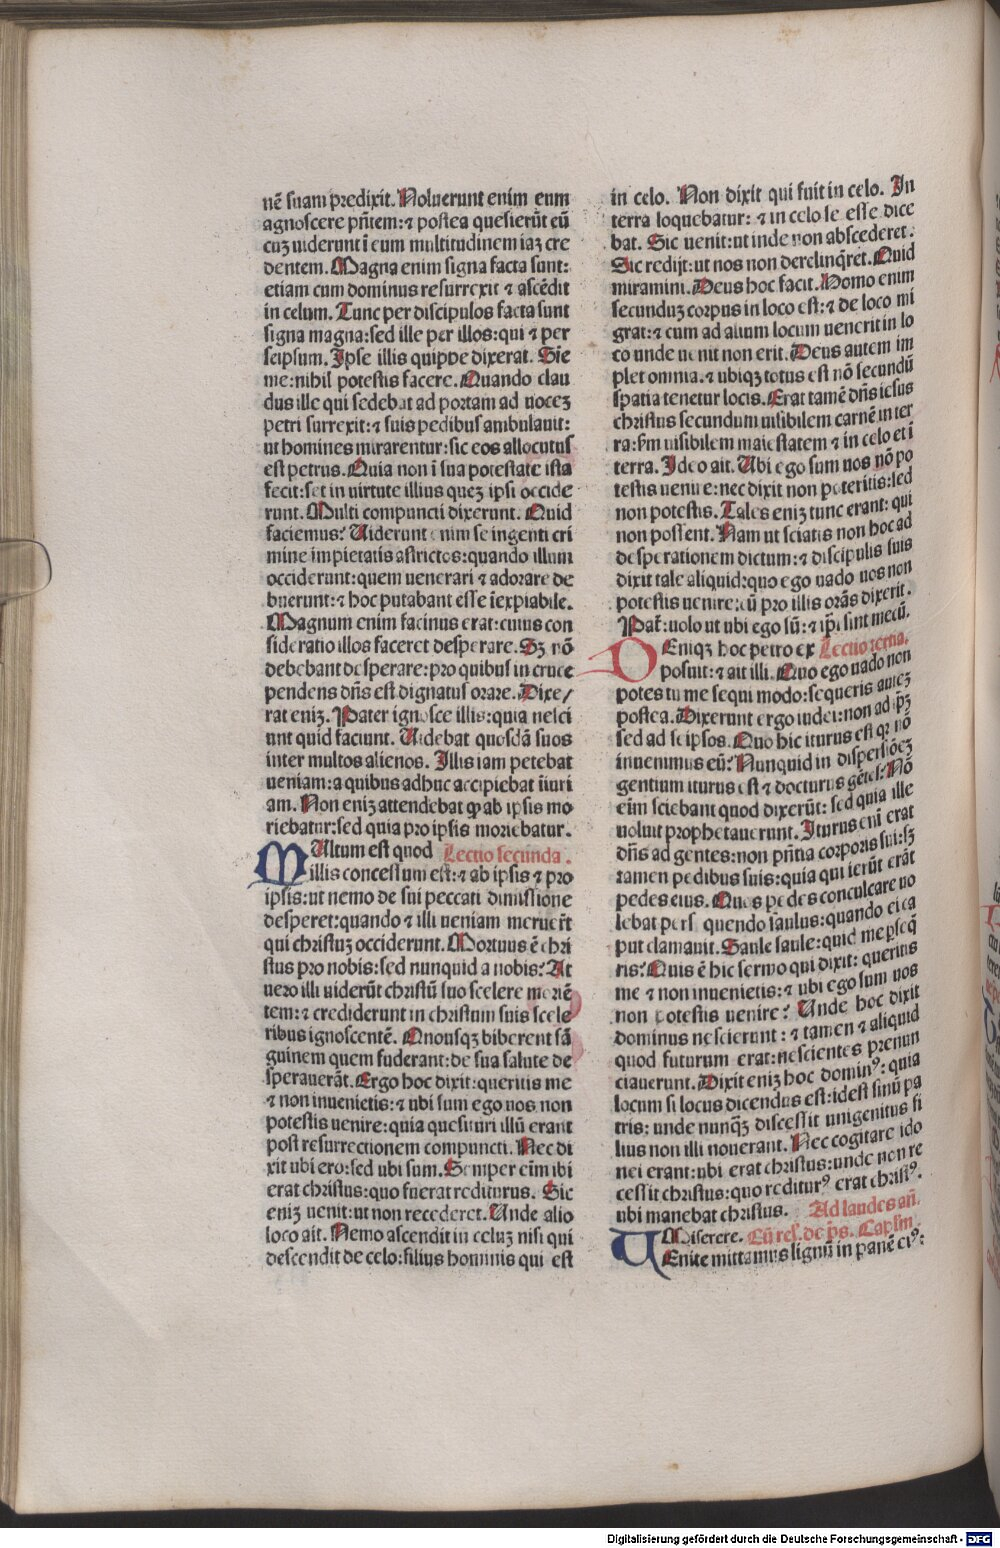 nē suam predixit. Noluerunt enim eum
agnoscere pñtem: ⁊ postea quesierūt eū
cuꝫ uiderunt ī eum multitudinem iaꝫ cre
dentem. Magna enim signa facta sunt:
etiam cum dominus resurrexit ⁊ ascēdit
in celum. Tunc per discipulos facta sunt
signa magna: sed ille per illos: qui ⁊ per
seipsum. Ipse illis quippe dixerat. Sie
me: nihil potestis facere. Quando clau
dus ille qui sedebat ad portam ad uoceꝫ
petri surrexit: ⁊ suis pedibus ambulauit:
ut homines mirarentur: sic eos allocutus
est petrus. Quia non ī sua potestate ista
fecit: set in uirtute illius queꝫ ipsi occide
runt. Multi compuncti dixerunt. Quid
faciemus? Uiderunt enim se ingenti cri
mine impietatis astrictos: quando illum
occiderunt: quem uenerari ⁊ adorare de
buerunt: ⁊ hoc putabant esse īexpiabile.
Magnum enim facinus erat: cuius con
sideratio illos faceret desperare. Sꝫ nō
debebant desperare: pro quibus in cruce
pendens dñs est dignatus orare. Dixe/
rat eniꝫ. Pater ignosce illis: quia nesci
unt quid faciunt. Uidebat quosdā suos
inter multos alienos. Illis iam petebat
ueniam: a quibus adhuc accipiebat īiuri
am. Non eniꝫ attendebat ꝙ ab ipsis mo
riebatur: sed quia pro ipsis moriebatur.
MUltum est quod Lectio secunda.
illis concessum est: ⁊ ab ipsis ⁊ pro
ipsis: ut nemo de sui peccati dimissione
desperet: quando ⁊ illi ueniam meruer̄t
qui christuꝫ occiderunt. Mortuus ē chri
stus pro nobis: sed nunquid a nobis? At
uero illi uiderūt christū suo scelere moriē
tem: ⁊ crediderunt in christum suis scele
ribus ignoscentē. Quousqꝫ biberent sā
guinem quem fuderant: de sua salute de
sperauerāt. Ergo hoc dixit: queritis me
⁊ non inuenietis: ⁊ ubi sum ego uos non
potestis uenire: quia quesituri illū erant
post resurrectionem compuncti. Nec di
xit ubi ero: sed ubi sum. Semper eīm ibi
erat christus: quo fuerat rediturus. Sic
eniꝫ uenit: ut non recederet. Unde alio
loco ait. Nemo ascendit in celuꝫ nisi qui
descendit de celo: filius hominis qui est
in celo. Non dixit qui fuit in celo. In
terra loquebatur: ⁊ in celo se esse dice
bat. Sic uenit: ut inde non abscederet.
Sic redijt: ut nos non derelinq̄ret. Quid
miramini. Deus hoc facit. Homo enim
secunduꝫ corpus in loco est: ⁊ de loco mi
grat: ⁊ cum ad alium locum uenerit in lo
co unde uenit non erit. Deus autem im
plet omnia. ⁊ ubiqꝫ totus est nō secundū
spatia tenetur locis. Erat tamē dñs iesus
christus secundum uisibilem carnē in ter
ra: s̄m uisibilem maiestatem ⁊ in celo et ī
terra. Ideo ait. Ubi ego sum uos nō po
testis uenire: nec dixit non poteritis: sed
non potestis. Tales eniꝫ tunc erant: qui
non possent. Nam ut sciatis non hoc ad
desperationem dictum: ⁊ discipulis suis
dixit tale aliquid: quo ego uado uos non
potestis uenire: cū pro illis orās dixerit.
Pat̄: uolo ut ubi ego sū: ⁊ ip̄i sint mecū.
DEniqꝫ hoc petro ex Lectio tertia.
posuit: ⁊ ait illi. Quo ego uado non
potes tu me sequi modo: sequeris auteꝫ
postea. Dixerunt ergo iudei: non ad ip̄ꝫ
sed ad seipsos. Quo hic iturus est qꝛ nō
inuenimus eū? Nunquid in dispersiōeꝫ
gentium iturus est ⁊ docturus gētes? Nō
eīm sciebant quod dixerūt: sed quia ille
uoluit prophetauerunt. Iturus enī erat
dñs ad gentes: non pñtia corporis sui: sꝫ
tamen pedibus suis: quia qui ierūt erāt
pedes eius. Quos pedes conculcare uo
lebat persequendo saulus: quando ei ca
put clamauit. Saule saule: quid me ꝑseq̄
ris? Quis ē hic sermo qui dixit: queritis
me ⁊ non inuenietis: ⁊ ubi ego sum uos
non potestis uenire? Unde hoc dixit
dominus nescierunt: ⁊ tamen ⁊ aliquid
quod futurum erat: nescientes prenun
ciauerunt. Dixit eniꝫ hoc dominꝰ: quia
locum si locus dicendus est: idest sinū pa
tris: unde nunqꝫ discessit unigenitus fi
lius non illi nouerant. Nec cogitare ido
nei erant: ubi erat christus: unde non re
cessit christus: quo rediturꝰ erat christꝰ.
ubi manebat christus. Ad laudes añ.
Miserere. Cū rel. de p̄s. Caplm̄
UEnite mittamus lignū in panē eiꝰ:
Digitalisierung gefördert durch die Deutsche Forschungsgemeinschaft - DFG